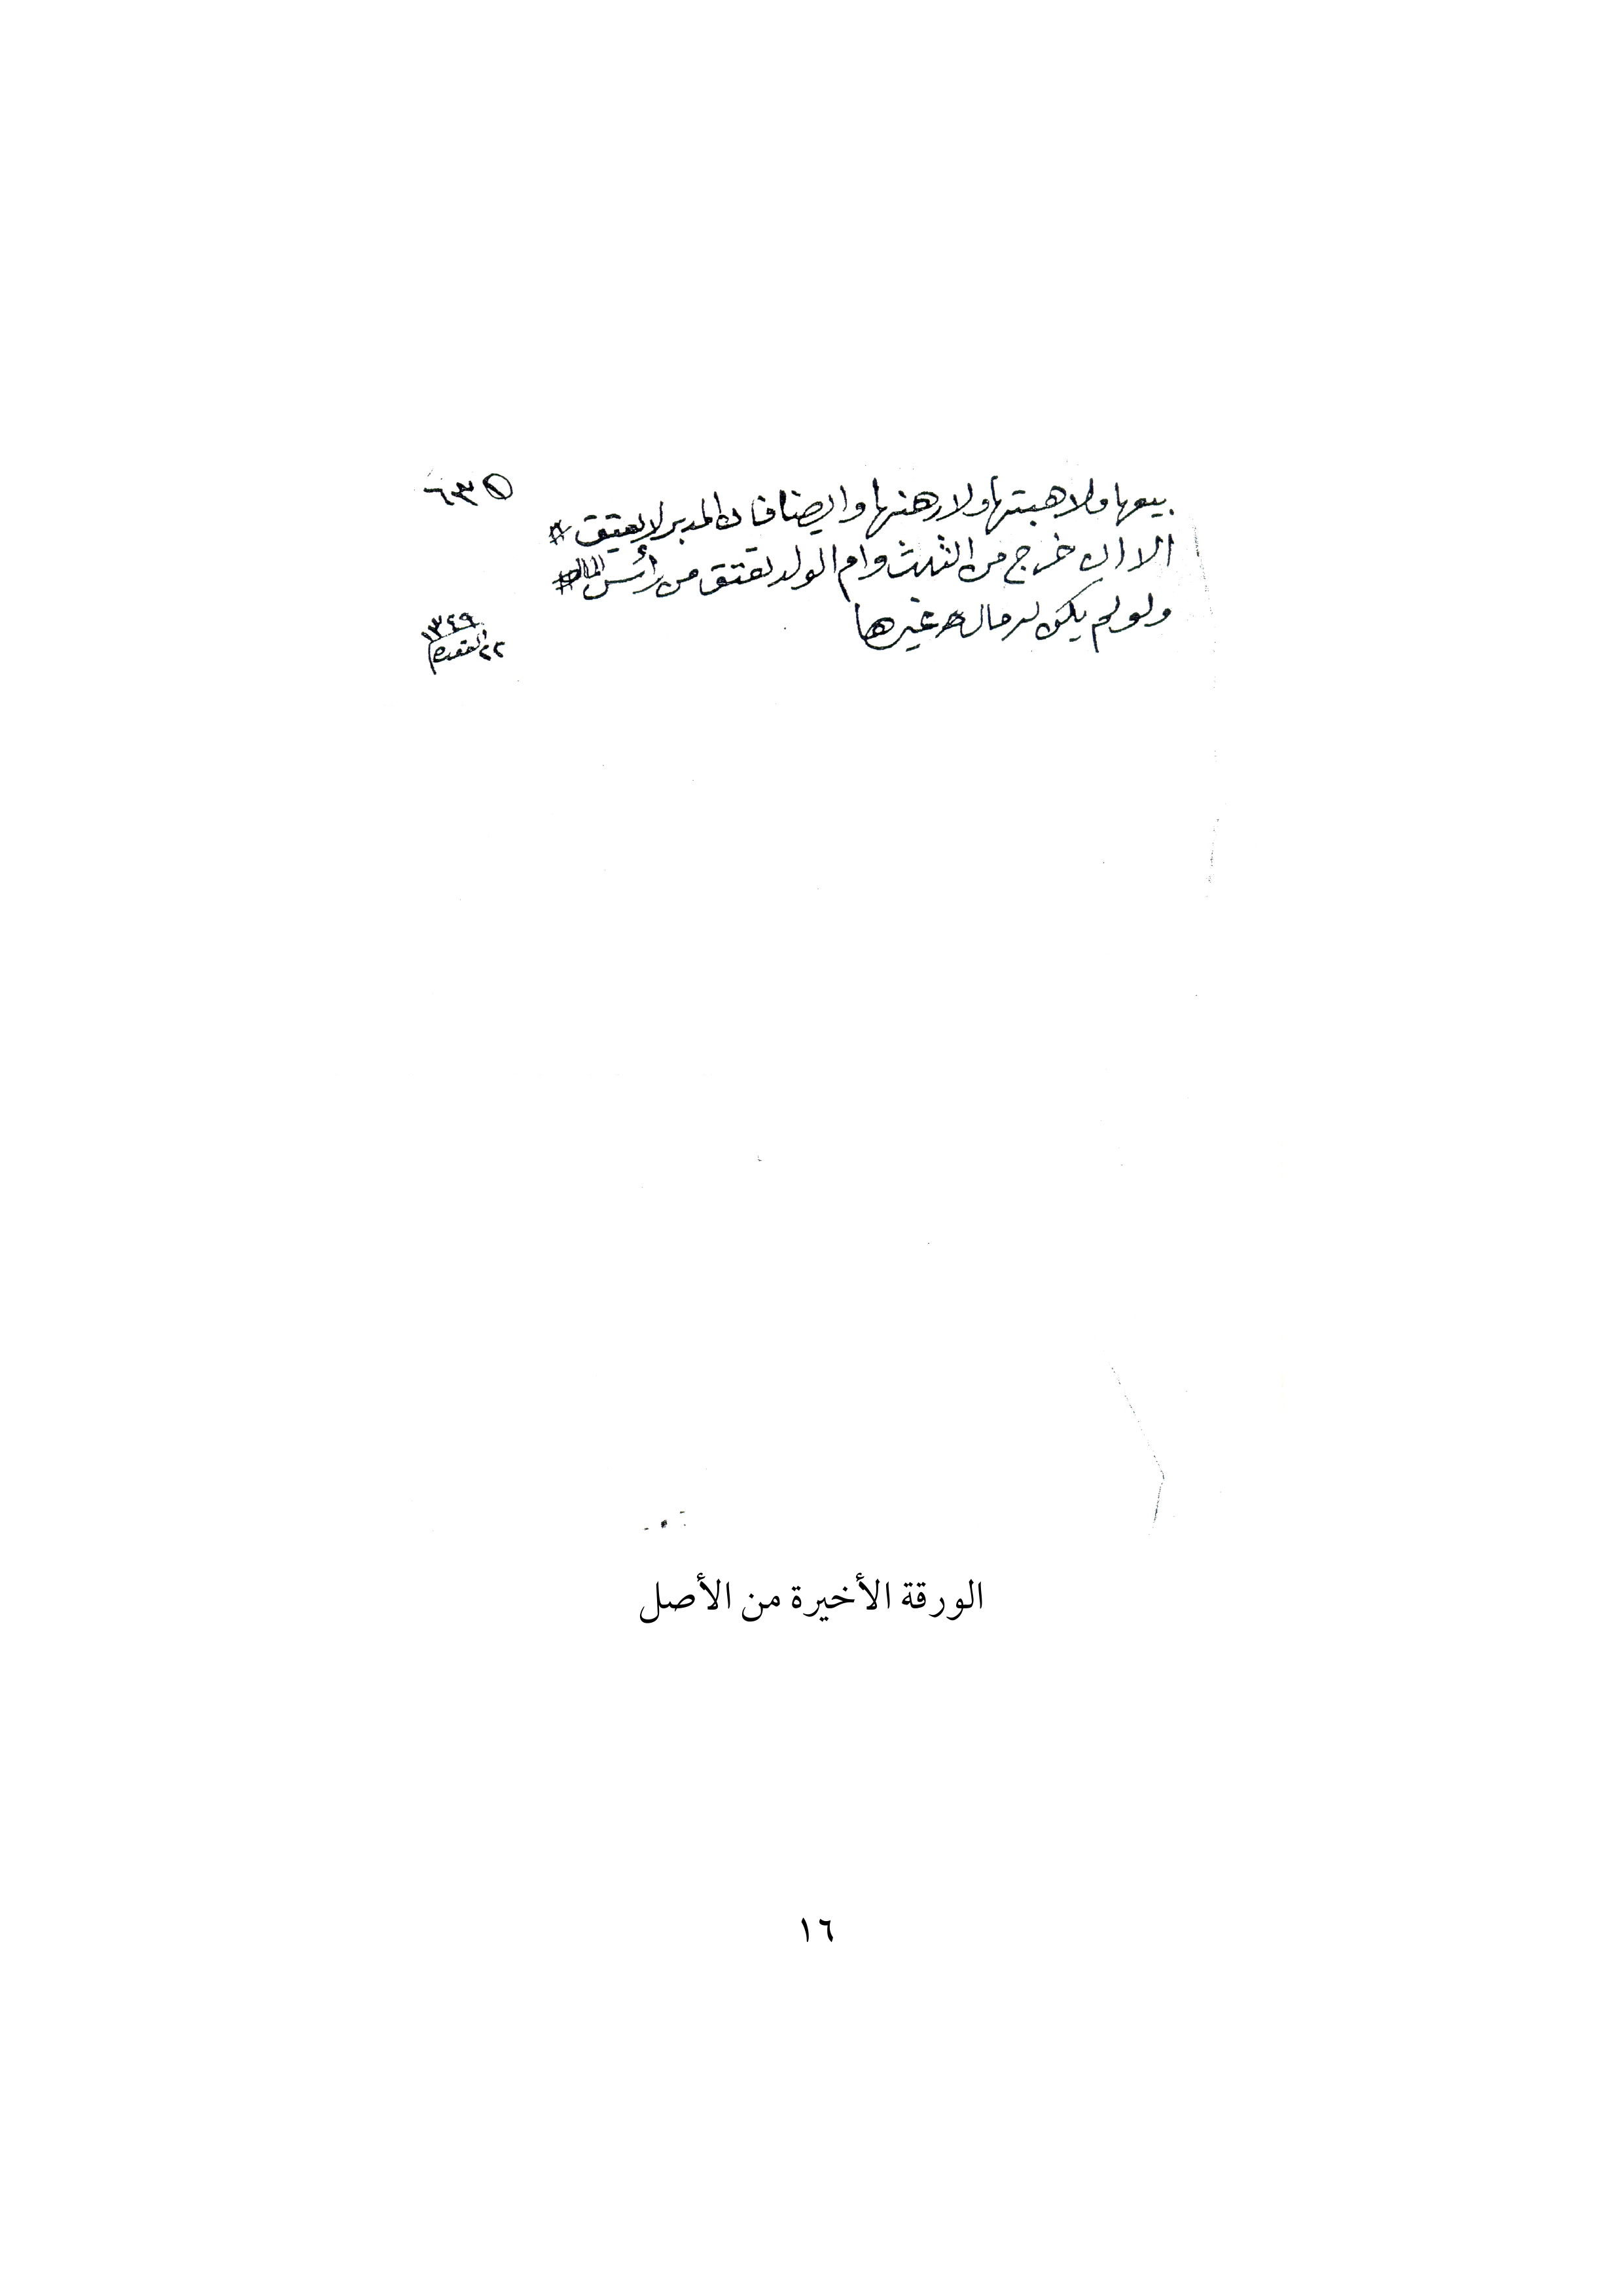 بيعها ولا هبتها ولا رهنها وايضا فان المدبر لا يعتق #
الا ان خرج من الثلث وام الولد تعتق من رأس المال #
ولو لم يكن له مال غيرها
١٣٤٩
٢٢ القعدة
الورقة الأخيرة من الأصل
١٦